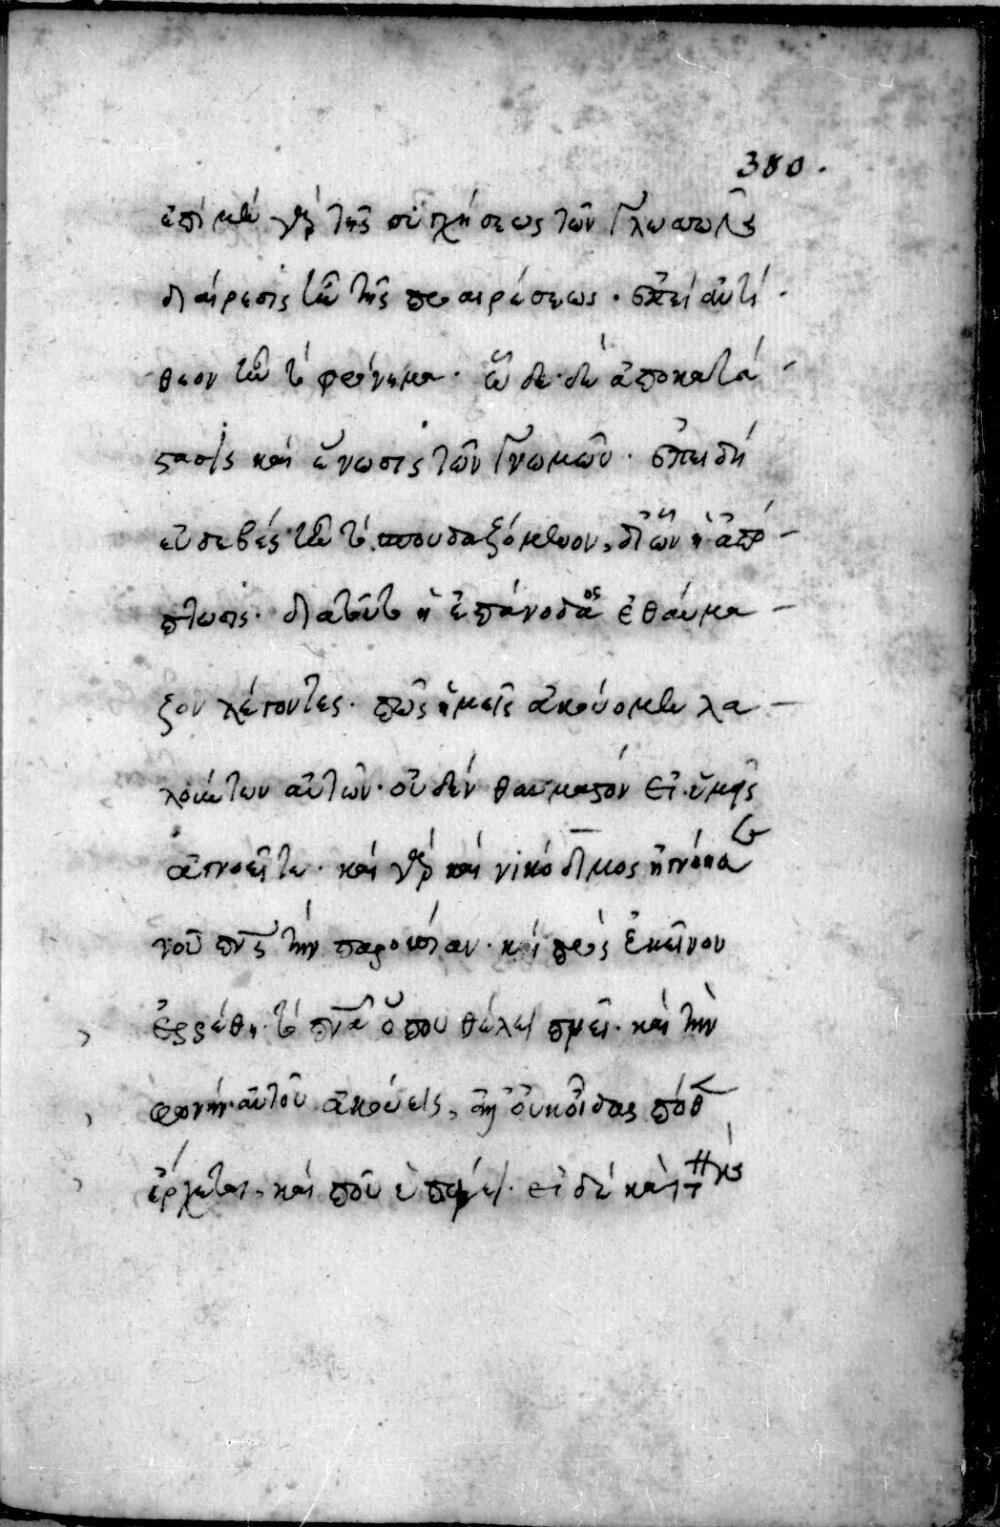 380.
ἐπὶ μὲν γὰρ τῆς συγχύσεως τῶν γλωσσῶν
διαίρεσις ἦν τῆς προαιρέσεως. ἐπεὶ ἀντί
θεον ἦν τὸ φρόνημα. ὧδε δὲ ἀποκατά
στασις καὶ ἕνωσις τῶν γνωμῶν. ἐπειδὴ
εὐσεβὲς ἦν τὸ σπουδαζόμενον. δι' ὧν ἡ ἀπό
πτωσις. διὰ τούτων ἡ ἐπάνοδος ἐθαύμα
ζον λέγοντες. πῶς ἡμεῖς ἀκούομεν λα
λούντων αὐτῶν. οὐδὲν θαυμαστὸν εἰ ὑμεῖς
ἀγνοεῖτε. καὶ γὰρ καὶ νικόδημος ἠγνόησε
τοῦ πνς τὴν παρουσίαν. καὶ πρὸς ἐκεῖνον
ἐρρέθη τὸ πνα ὅπου θέλει πνεῖ. καὶ τὴν
φωνὴν αὐτοῦ ἀκούεις, ἀλλ' οὐκ οἶδας πόθεν
ἔρχεται. καὶ ποῦ ὑπάγει. εἰ δὲ καὶ τῆς